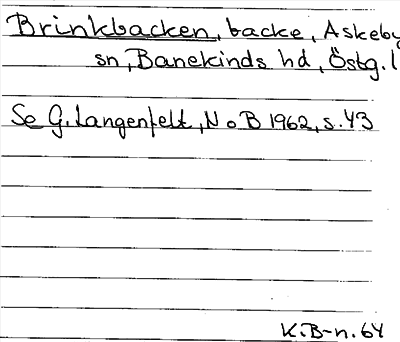 Brinkbacken, backe, Askeby
sn, Banekinds hd, Östg. l
Se G. Langenfelt, NoB 1962, s. 43
K. B-n. 64